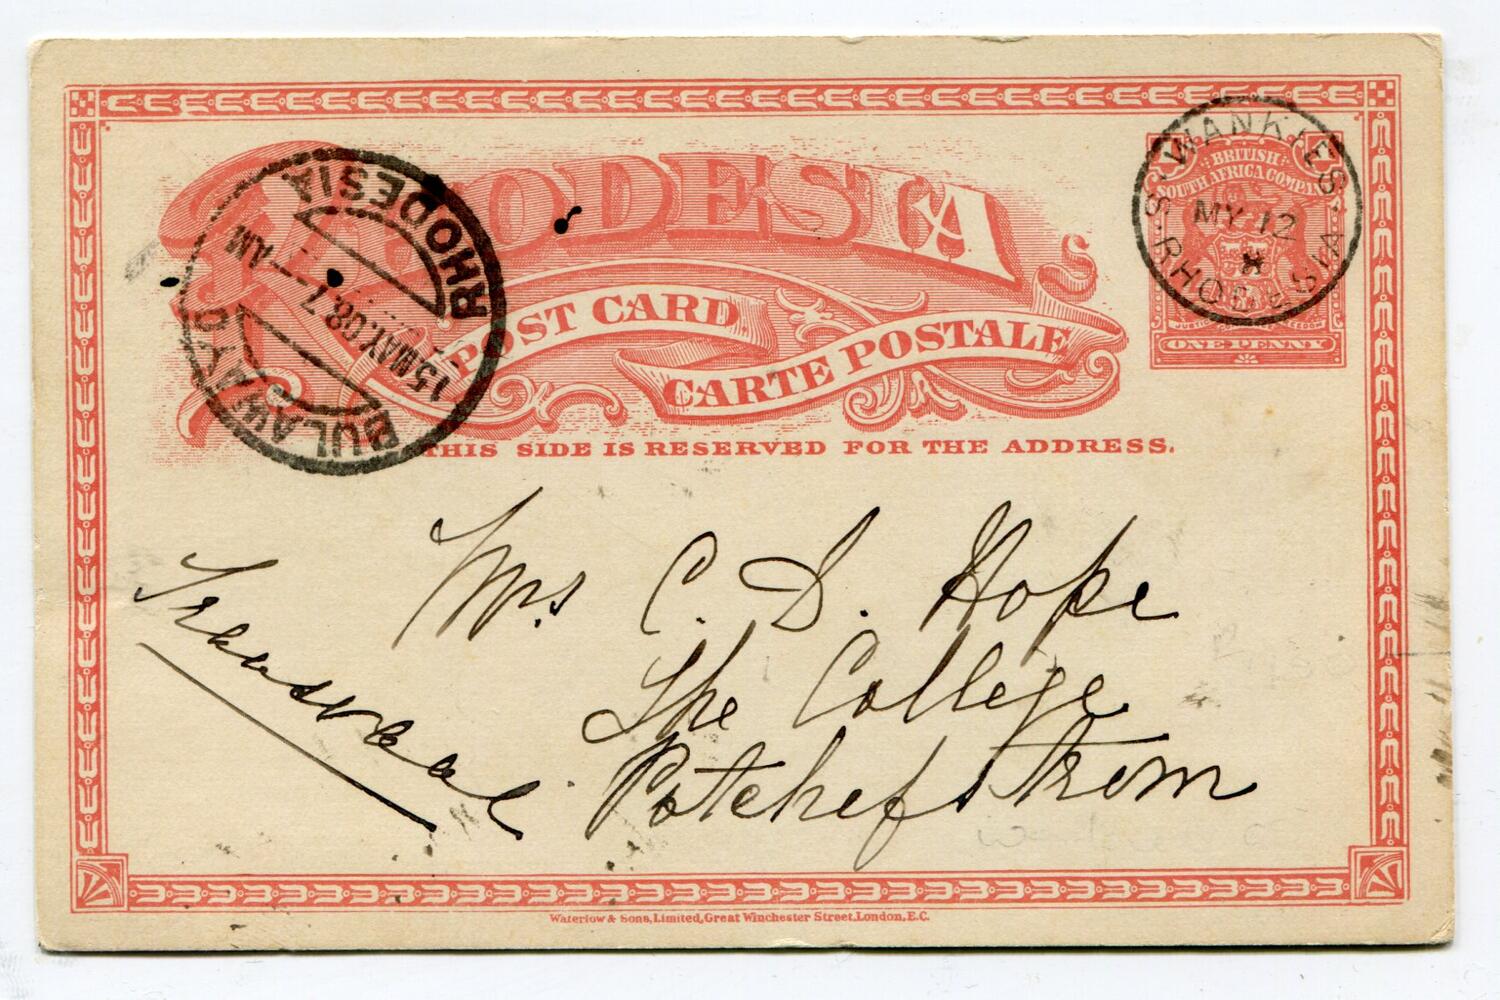 RHODESIA
POST CARD.
CARTE POSTALE
THIS SIDE IS RESERVED FOR THE ADDRESS.
WANKIES.
MY 12
8
S. RHODESIA
BRITISH
SOUTH AFRICA COMPANY
ONE PENNY
RHODESIA
15 MAY. 08. 7 - AM
BULAWAYO
Mrs C. D. Hope
The College
Potchefstrom
Transvaal
Waterlow & Sons, Limited, Great Winchester Street, London, E.C.